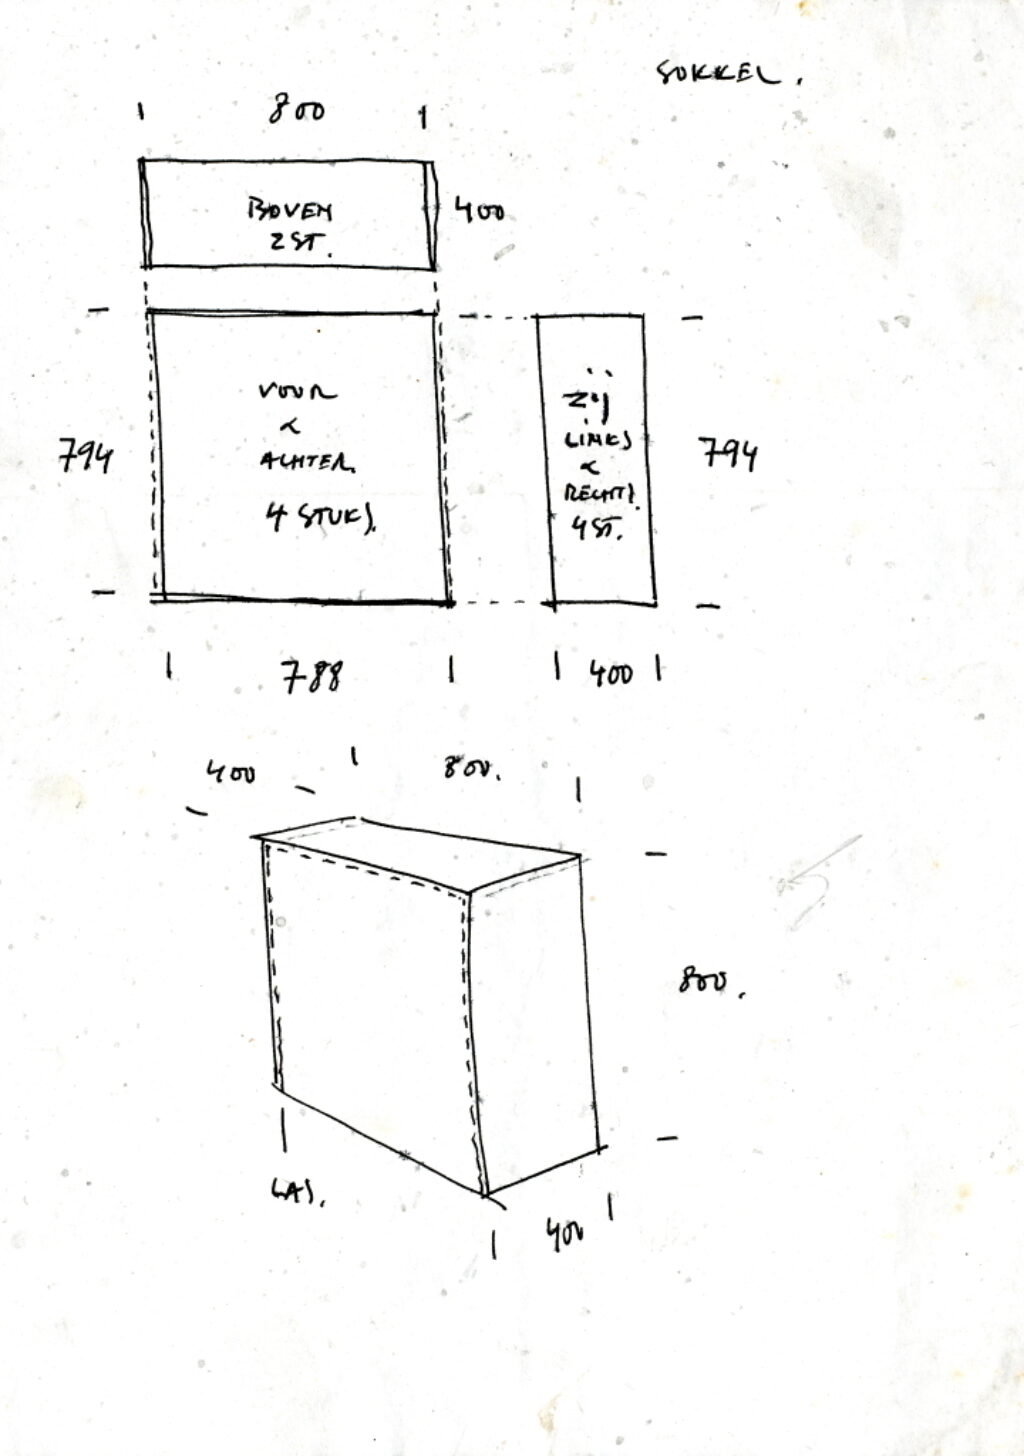 SOKKEL.
800
BOVEN
2 ST.
400
794
VOOR
&
ACHTER.
4 STUKS.
ZIJ
LINKS
&
RECHTS.
4 ST.
794
788
400
400
800.
800.
LAS.
400